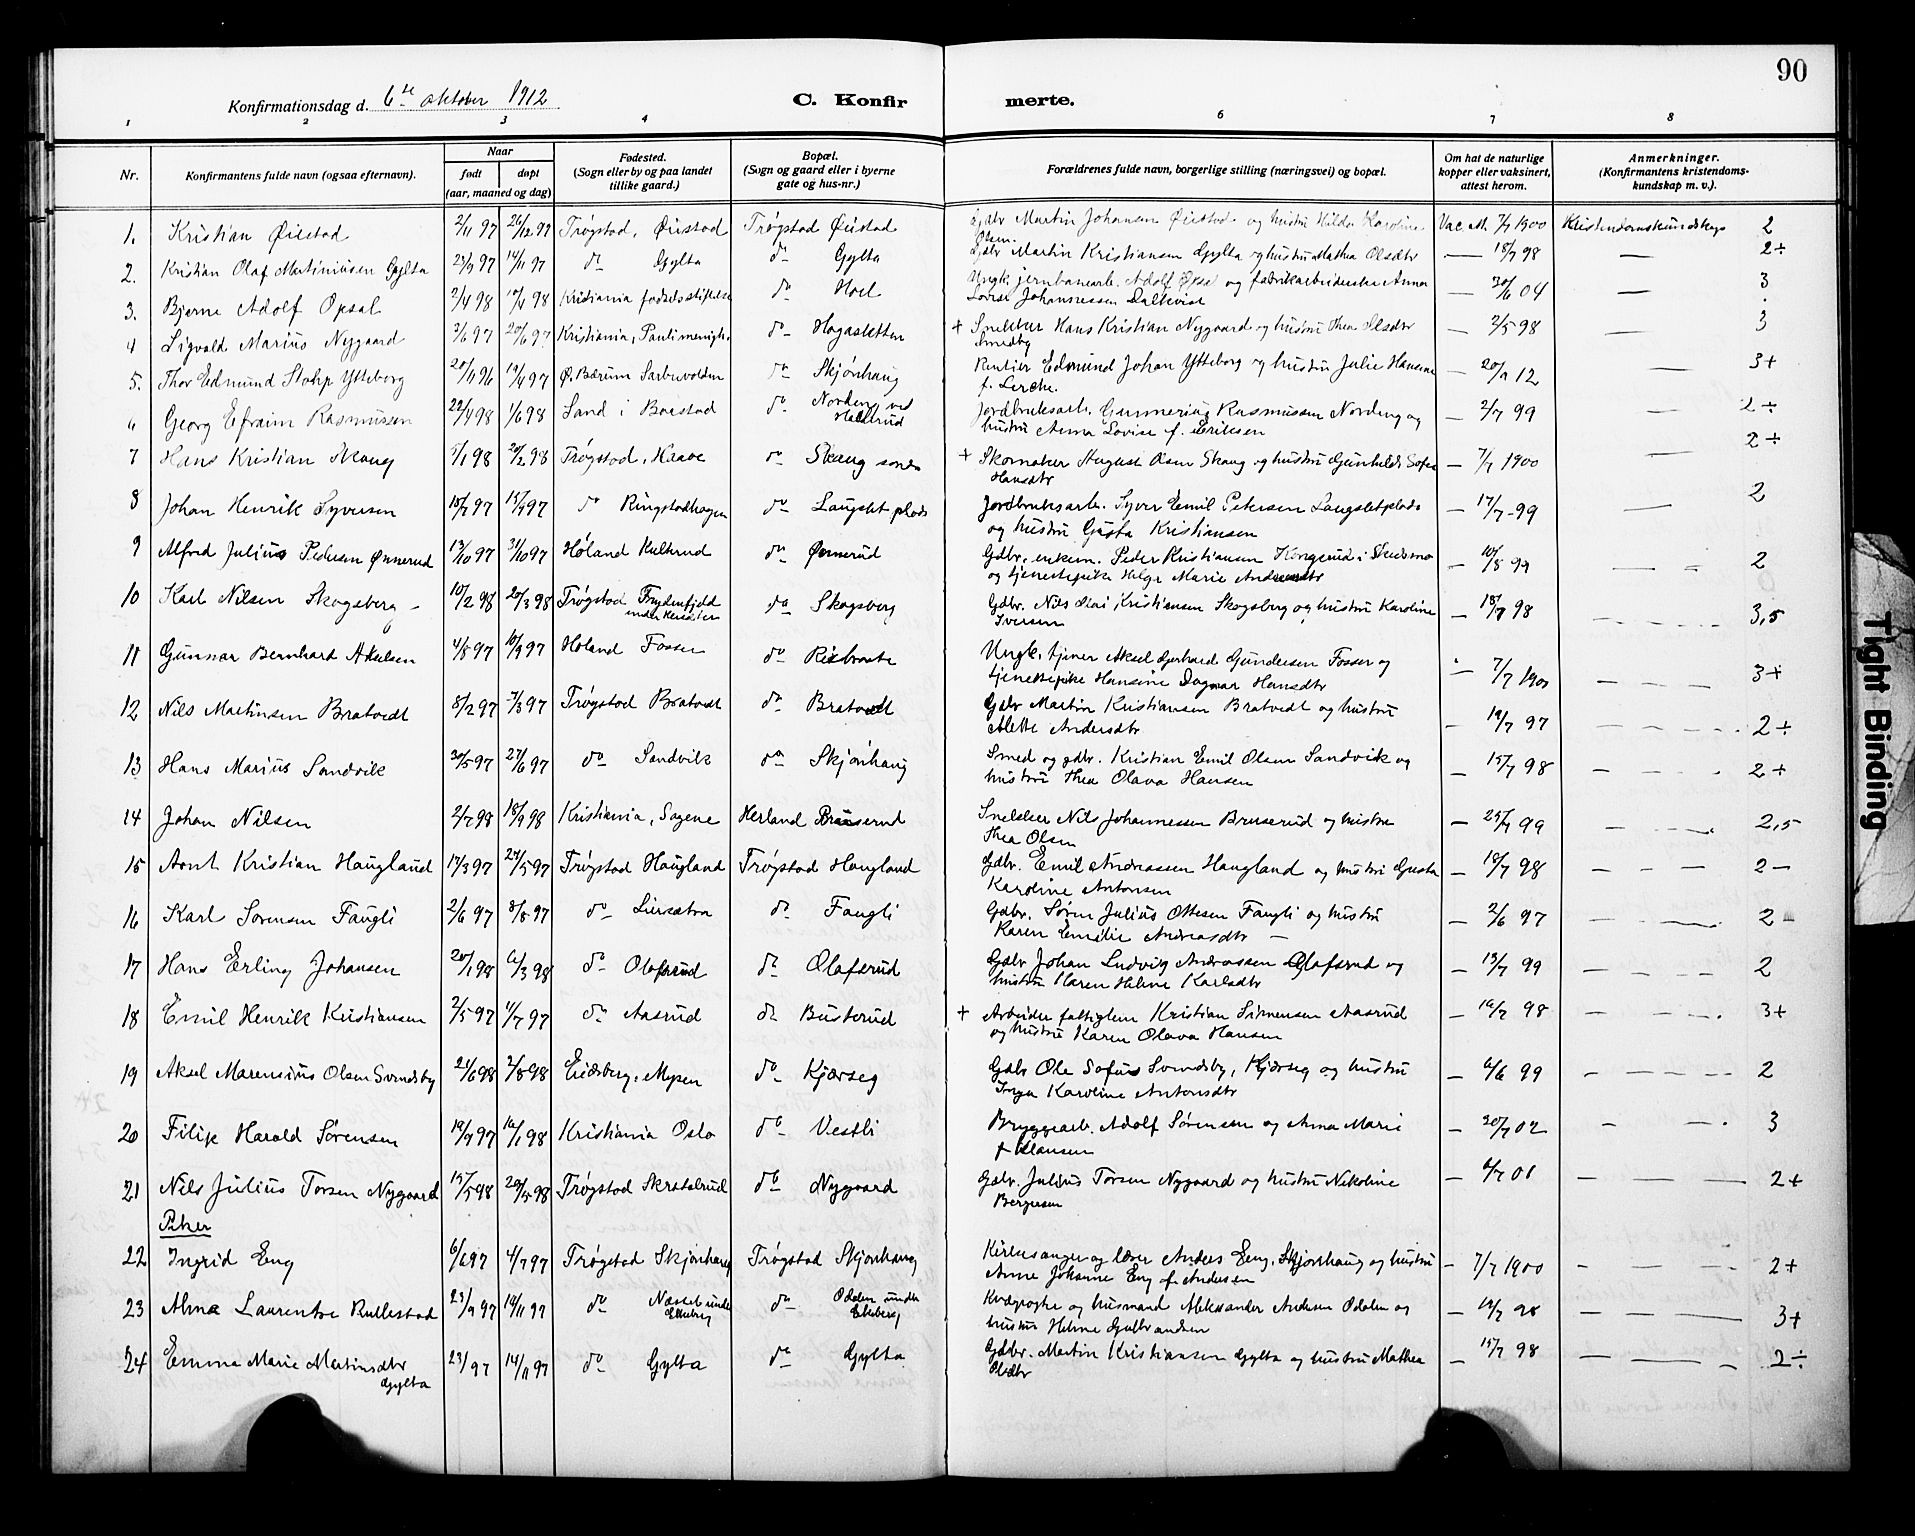 90
Konfirmationsdag d. 6te oktober 1912
C. Konfirmerte.
1 2 3 4 6 7 8
Nr. Konfirmantens fulde navn (ogsaa efternavn). Naar født døpt (aar, maaned og dag) Fødested. (Sogn eller by og paa landet tillike gaard.) Bopæl. (Sogn og gaard eller i byerne gate og hus-nr.) Forældrenes fulde navn, borgerlige stilling (næringsvei) og bopæl. Om hat de naturlige kopper eller vaksinert, attest herom. Anmerkninger. (Konfirmantens kristendomskundskap m. v.).
1. Kristian Øistad 2/11 97 26/12 97 Trøgstad, Øistad Trøgstad Øistad Gdbr Martin Johansen Øistad og hustru Hilda Karoline Olsen. Vac. At. 7/7 1900 Kristendomskundskap 2
2. Kristian Olaf Martiniusen Gylta 23/9 97 14/11 97 do Gylta do Gylta Gdbr Martin Kristiansen Gylta og hustru Mathea Olsdtr — 18/7 98 — 2÷
3. Bjarne Adolf Opsal 2/4 98 10/4 98 Kristiania fødselsstiftelse do Hoel Ungk. jernbanearb. Adolf Opsal og fabrikarbeiderske Anna Lovise Johannessen Dalkvist — 30/6 04 — 3
4 Sigvald Marius Nygaard 3/6 97 20/6 97 Kristiania, Paulimenigh. do Hagasletten + Snekker Hans Kristian Nygaard og hustru Thea Olsdtr Smedby — 2/5 98 — 3
5. Thor Edmund Stohp Ytteborg 20/11 96 19/4 97 Ø. Bærum Sarbuvolden do Skjønhaug Rentier Edmund Johan Ytteborg og hustru Julie Hansine f. Lerche. — 20/9 12 — 3+
6 Georg Efraim Rasmussen 22/4 98 1/6 98 Sand i Barstad do Norden ved Haldsrud Jordbruksarb. Gunnerius Rasmussen Nordeng og hustru Anna Lovise f. Eriksen — 2/7 99 — 2÷
7 Hans Kristian Skaug 5/1 98 20/2 98 Trøgstad, Haave do Skaug søndre + Skomaker August Olsen Skaug og hustru Gunhilde Sofie Hansdtr — 7/7 1900 — 2÷
8 Johan Henrik Syversen 18/7 97 15/9 97 do Ringstadhagen do Laugslet plads Jordbruksarb. Syver Emil Petersen Laugsletplads og hustru Gusta Kristiansen — 17/7 99 — 2
9 Alfred Julius Pedersen Ønnerud 13/10 97 31/10 97 Høland Kulterud do Ønnerud Gdbr. enkem. Peder Kristiansen Kongsrud i Skedsmo og tjenestepike Helga Marie Andersdtr — 10/8 99 — 2
10 Karl Nilsen Skogsberg 10/2 98 20/3 98 Trøgstad Frydenfjeld do Skogsberg Gdbr. Nils Kristiansen Skogsberg og hustru Karoline Iversen — 18/7 98 — 3,5
11 Gunnar Bernhard Akselsen 4/8 97 10/9 97 Høland Fosser do Risbraate Ungk. tjener Aksel Gerhard Gundersen Fosser og tjenestepike Hansine Dagmar Hansdtr — 7/7 1900 — 3+
12 Nils Martinsen Bratvedt 8/2 97 7/3 97 Trøgstad Bratvedt do Bratvedt Gdbr Martin Kristiansen Bratvedt og hustru Alette Andersdtr — 19/7 97 — 2÷
13 Hans Marius Sandvik 30/5 97 27/6 97 do Sandvik do Skjønhaug Smed og gdbr. Kristian Emil Olsen Sandvik og hustru Thea Olava Hansen — 15/7 98 — 2+
14 Johan Nilsen 2/7 98 18/9 98 Kristiania, Sagene Herland Bruserud Snekker Nils Johannessen Bruserud og hustru Thea Olsen — 25/7 99 — 2,5
15 Arnt Kristian Haugland 17/3 97 27/5 97 Trøgstad Haugland Trøgstad Haugland Gdbr. Emil Andreassen Haugland og hustru Gusta Karoline Antonsen — 18/7 98 — 2-
16 Karl Sørensen Faugli 2/6 97 8/8 97 do Liersætra do Faugli Gdbr. Søren Julius Ottesen Faugli og hustru Karen Emilie Andreasdtr — 2/6 97 — 2-
17 Hans Erling Johansen 20/1 98 6/3 98 do Olafsrud do Olafsrud Gdbr Johan Ludvig Andreassen Olafsrud og hustru Karen Helene Karlsdtr — 15/7 99 — 2
18 Emil Henrik Kristiansen 2/5 97 11/7 97 do Aasrud do Busterud + Arbeider fattiglem Kristian Simensen Aasrud og hustru Karen Olava Hansen — 19/7 98 — 3+
19 Aksel Marensius Olsen Svendsby 21/6 98 7/8 98 Eidsberg, Mysen do Kjærseg Gdbr Ole Sofus Svendsby, Kjærseg og hustru Inga Karoline Antonsdtr — 6/6 99 — 2
20 Filip Harald Sørensen 19/9 97 16/1 98 Kristiania Oslo do Vestli Bryggearb. Adolf Sørensen og Anna Marie f Klausen — 30/7 02 — 3
21 Nils Julius Torsen Nygaard 15/5 98 29/5 98 Trøgstad Skratelrud do Nygaard Gdbr. Julius Torsen Nygaard og hustru Nikoline Bergersen — 6/7 01 — 2+
Piker
22 Ingrid Eng 6/6 97 4/7 97 Trøgstad Skjønhaug Trøgstad Skjønhaug Kirkesanger og lærer Anders Eng, Skjønhaug og hustru Anne Johanne Eng f. Andersen — 7/7 1900 — 2+
23 Alma Laurentse Rullestad 23/9 97 14/11 97 do Næsset under Ekeberg do Odalen under Ekeberg Kvægrøgter og husmand Aleksander Andersen Odalen og hustru Helene Gulbrandsen — 19/7 98 — 3+
24 Emma Marie Martinsdtr Gylta 23/9 97 14/11 97 do Gylta do Gylta Gdbr. Martin Kristiansen Gylta og hustru Mathea Olsdtr — 15/7 98 — 2÷
Tight Binding